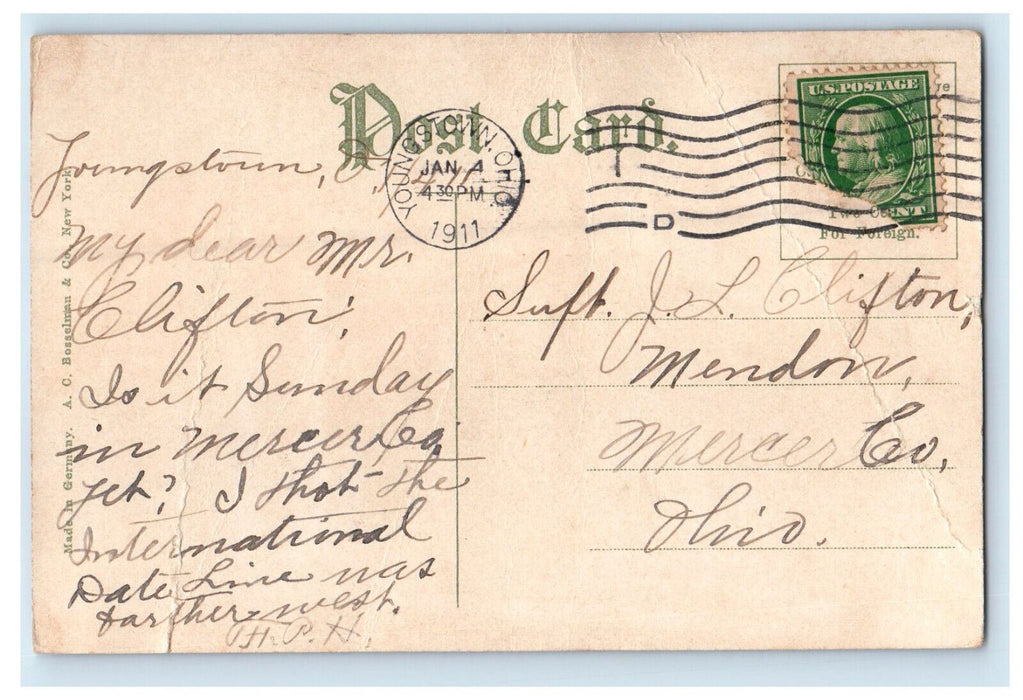 Post Card.
U.S. POSTAGE
Two Cents
For Foreign.
YOUNGSTOWN, OHIO.
JAN 4
4 30 PM
1911
D
Youngstown, O.
My dear Mr.
Clifton,
Is it Sunday
in Mercer Co.
yet? I thot the
International
Date Line was
farther west.
H. P. H.
Supt. J. L. Clifton,
Mendon,
Mercer Co,
Ohio.
Made in Germany. A. C. Bosselman & Co. New York